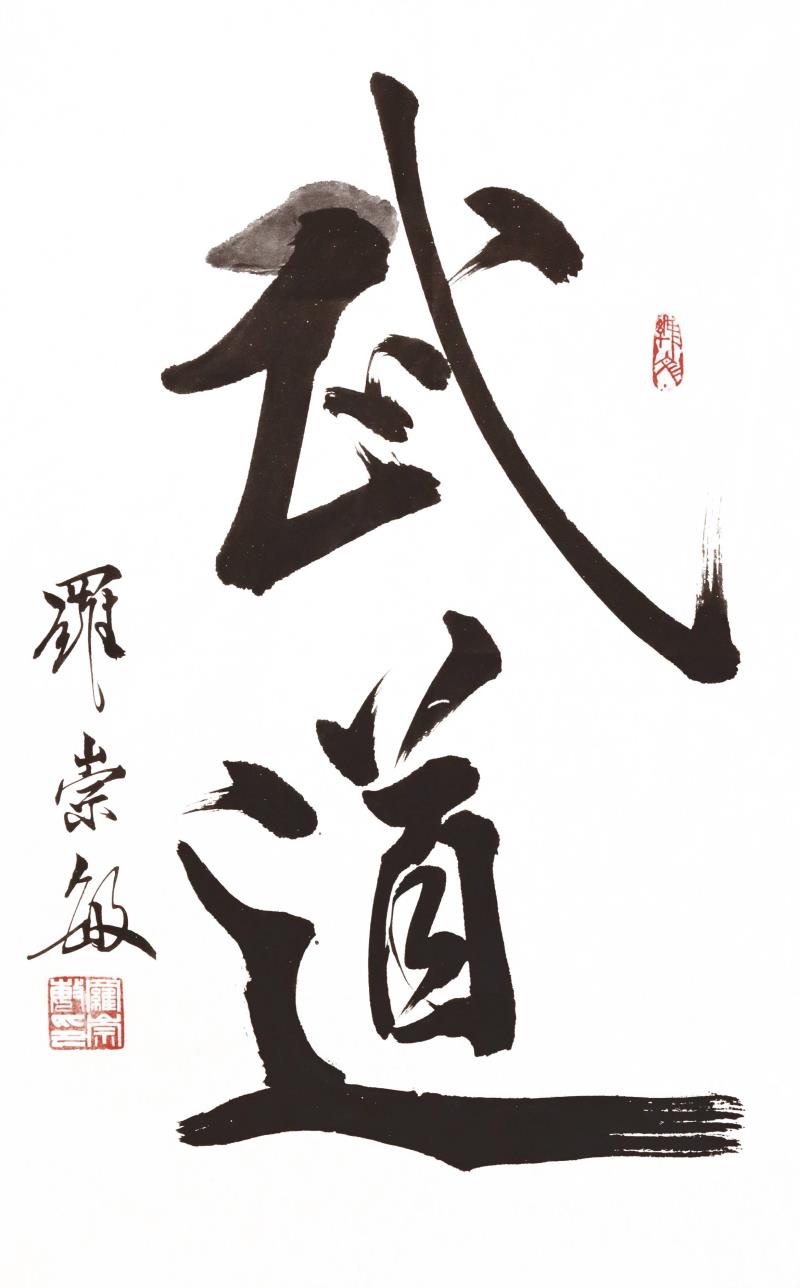 武道
羅崇敏
羅崇敏印